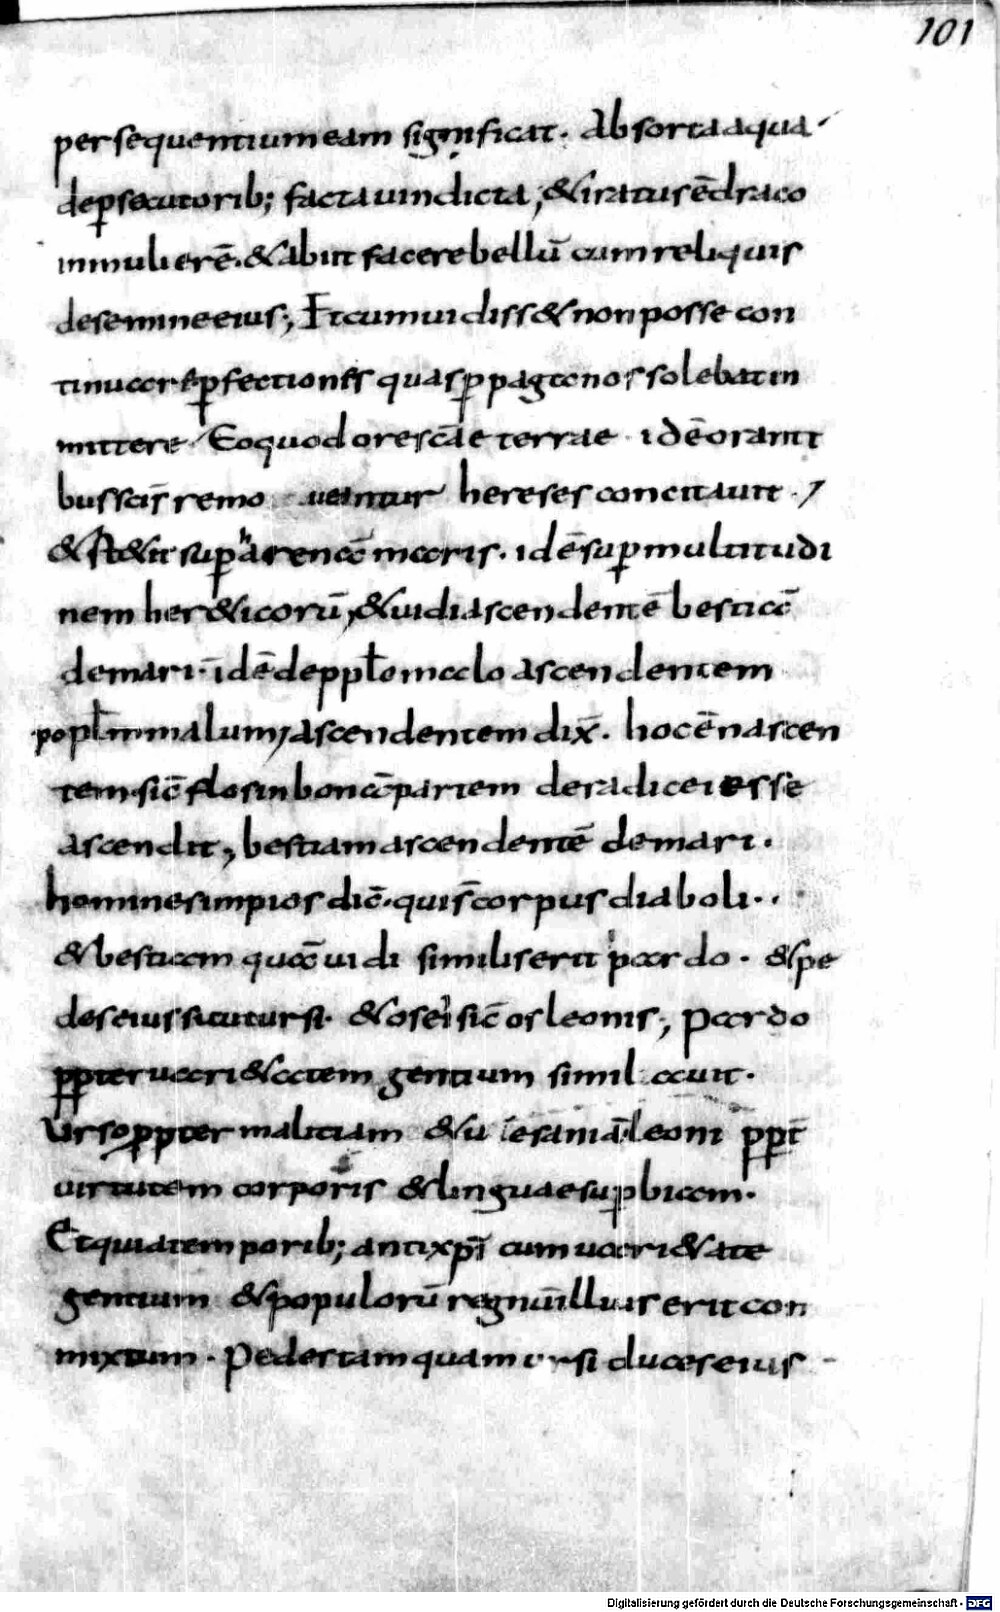 101
persequentium eam significat. Absorta aqua
de p̱secutorib; facta uindicta, & iratus ē draco
in mulierē. & abiit facere bellū cum reliquis
de semine eius; Et cum uidiss& non posse con
tinuare p̱sectiones quas p̱ paganos solebat in
mittere Eo quod ore scāe terrae id ē oranti
bus scīs remo ueantur hereses concitauit.
& st&it sup̱ harenā maris. id ē sup̱ multitudi
nem her&icorū, & uidi ascendentē bestiā
de mari. id ē de pplo malo ascendentem
popl̄m malum, ascendentem dix̄. hoc ē nascen
tem sic̄ flos in bonā partem de radice iesse
ascendit, bestiam ascendentē de mari.
homines impios dic̄. qui s̄ corpus diaboli..
& bestiam quā uidi similis erit pardo. & pe
des eius sicut ursi. & os ei sic̄ os leonis; pardo
pp̱ter uari&atem gentium simil auit.
Urso pp̱ter malitiam & u esaniā. leoni pp̱t̄
uirtutem corporis & linguae sup̱biam.
Et quia temporib; antixp̄i cum uari&ate
gentium & populorū regnū illius erit con
mixtum. Pedes tamquam ursi duces eius
Digitalisierung gefördert durch die Deutsche Forschungsgemeinschaft - DFG